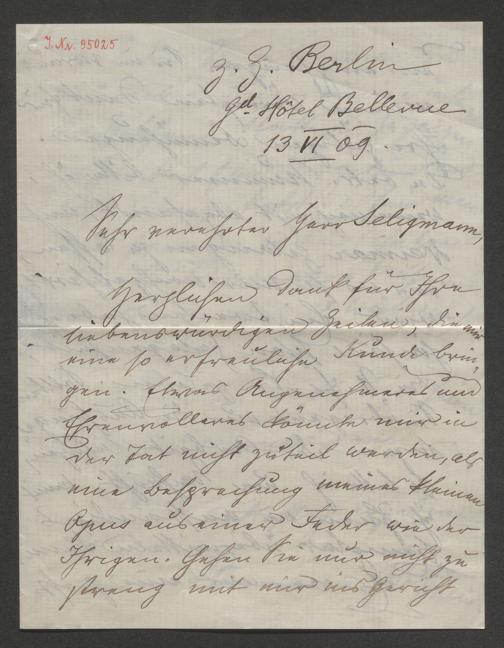 J. Nr. 95025
z. Z. Berlin
gd Hôtel Bellevue
13 VI 09.
Sehr verehrter Herr Seligmann,
Herzlichen Dank für Ihre
liebenswürdigen Zeilen, die mir
eine so erfreuliche Kunde brin-
gen. Etwas Angenehmeres und
Ehrenvolleres könnte mir in
der Tat nicht zuteil werden, als
eine Besprechung meines kleinen
Opus aus einer Feder wie der
Ihrigen. Gehen Sie nur nicht zu
streng mit mir ins Gericht